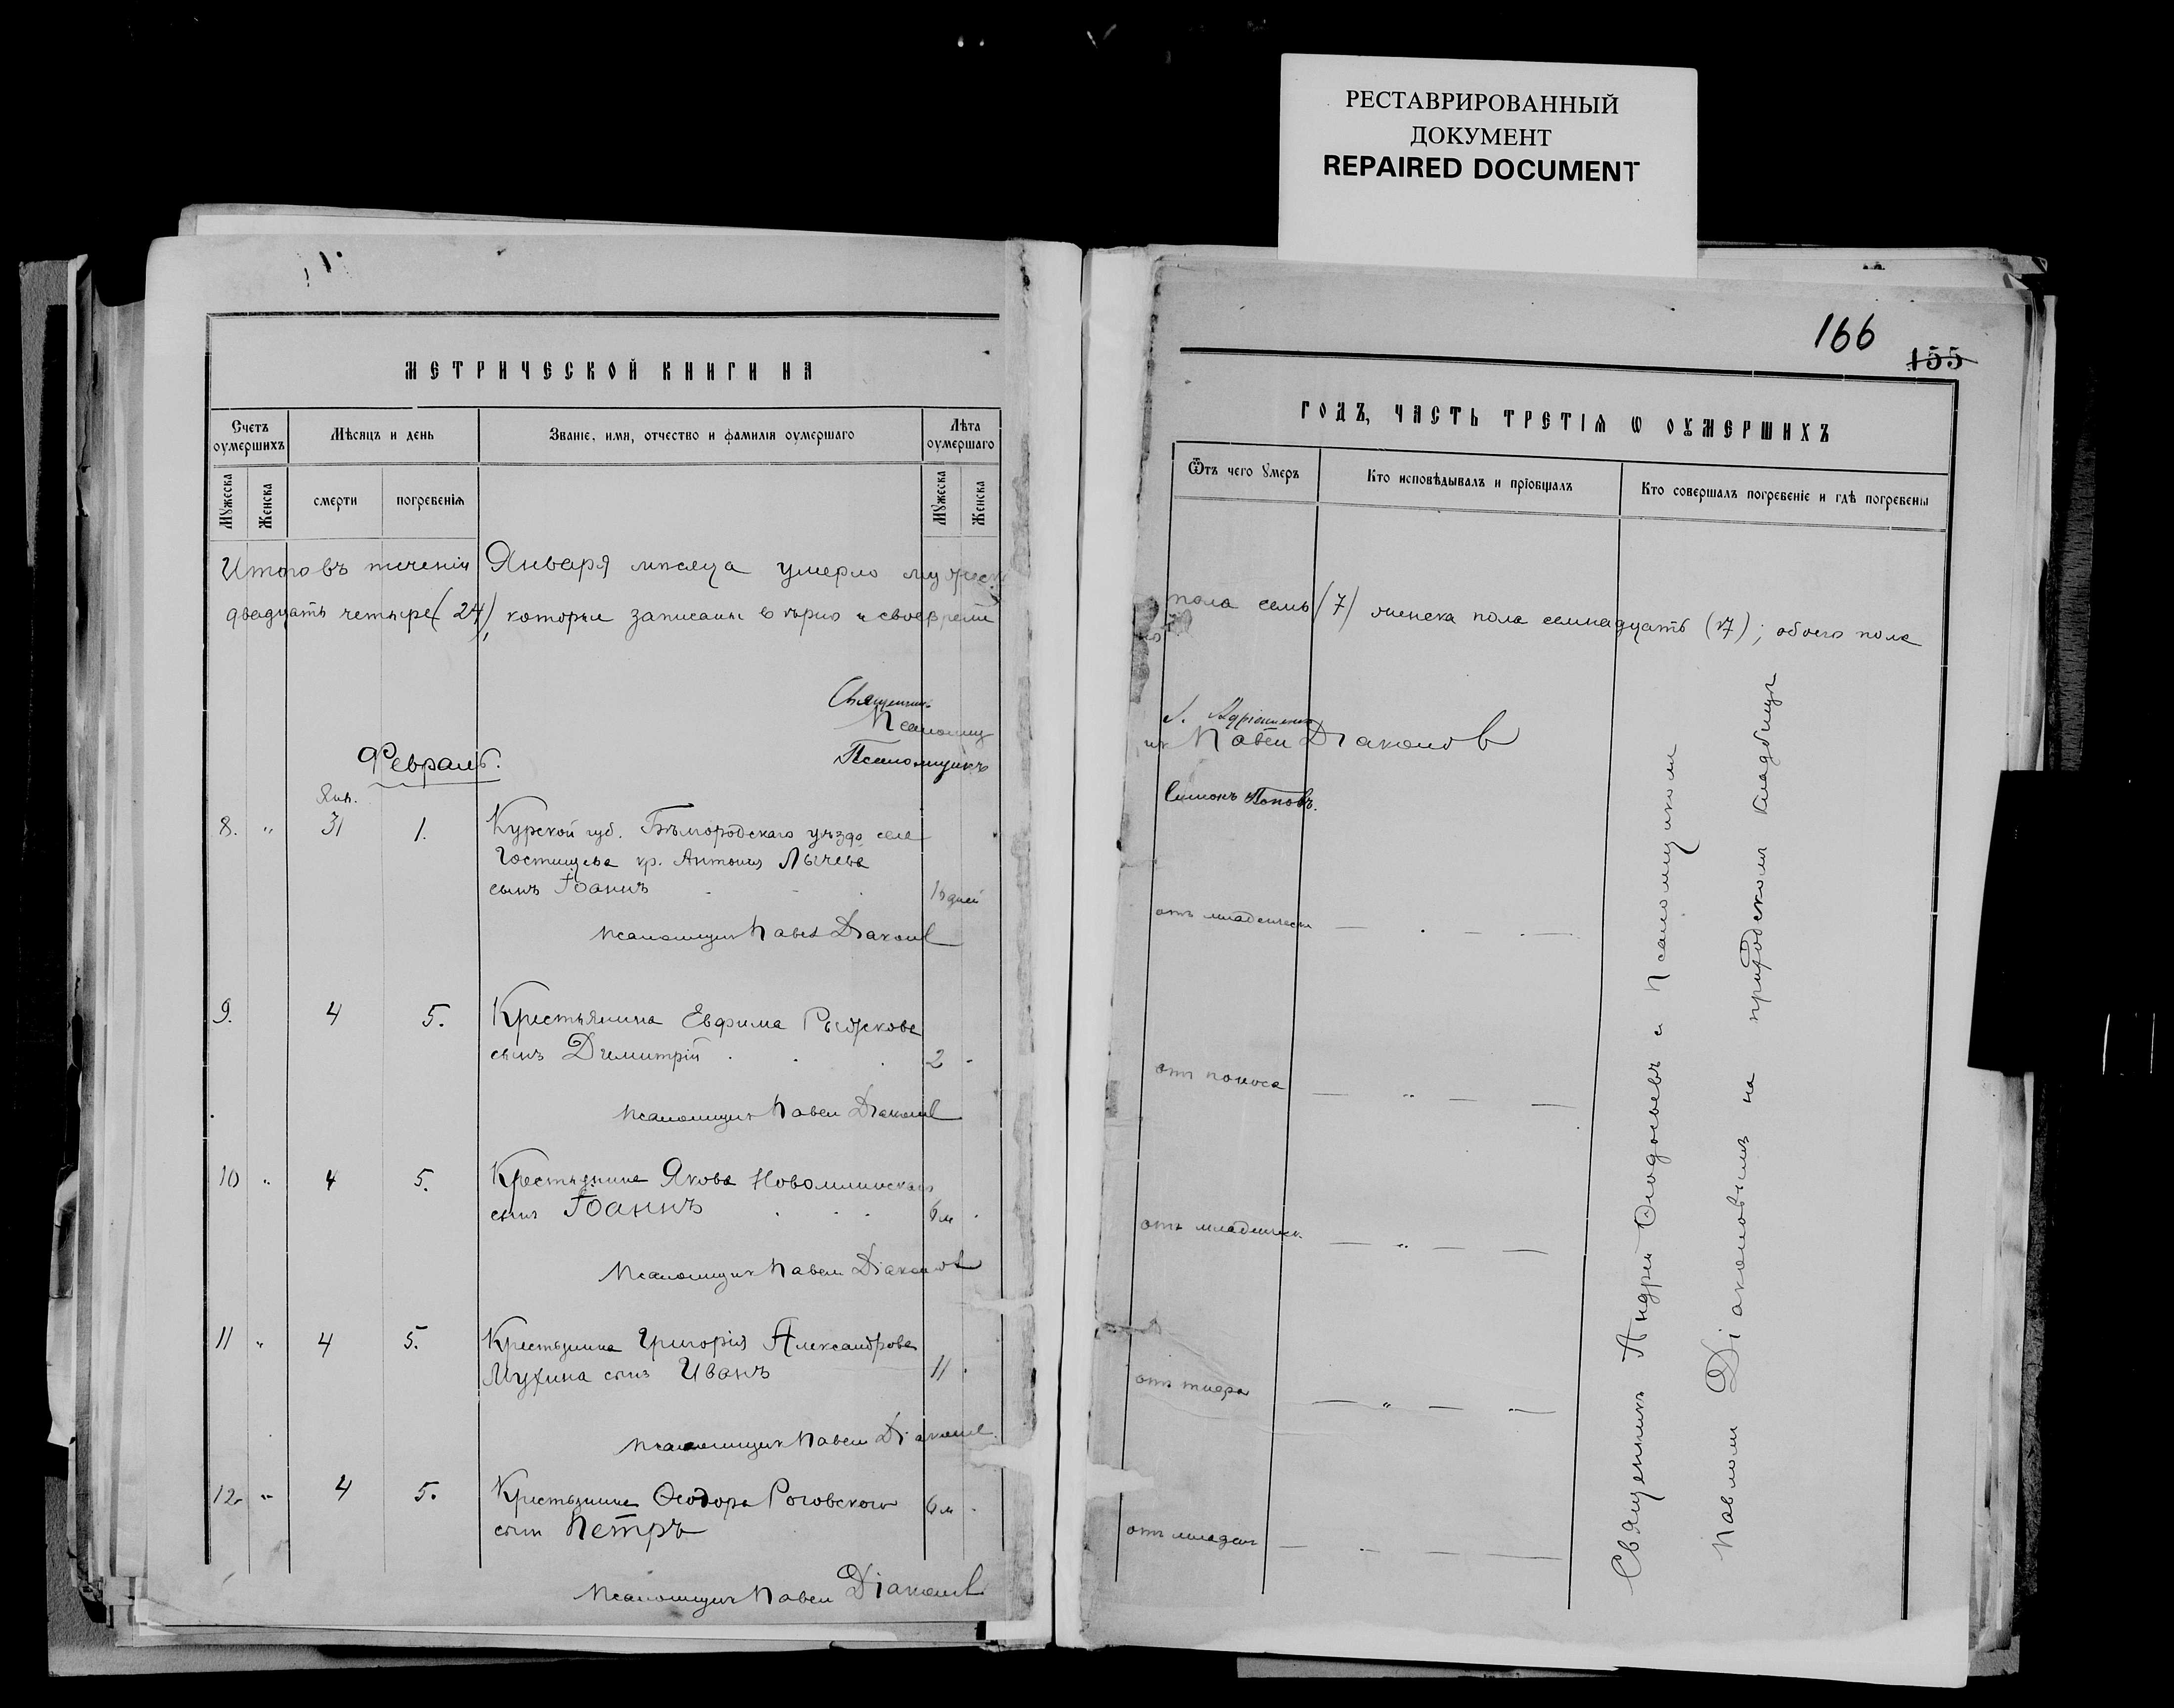 РЕСТАВРИРОВАННЫЙ
ДОКУМЕНТ
REPAIRED DOCUMENT
166
155
МЕТРИЧЕСКОЙ КНИГИ НА
Счетъ оумершихъ
Мѣсяцъ и день
Званіе, имя, отчество и фамилія оумершаго
Лѣта оумершаго
Мужеска
Женска
смерти
погребенія
Мужеска
Женска
Итого въ теченіи Января мѣсяца умерло мужеск
двадцать четыре (24), которые записаны вѣрно и своеврем
Священник
Псаломщ
Псаломщикъ
Февраль.
Янв.
8. " 31 1. Курской губ. Бѣлгородскаго уѣзда села
Гостищева кр. Антонія Лычева
сынъ Іоаннъ дней
Псаломщик Павел Діаконов
9. 4 5. Крестьянина Евфима Рыжкова
сынъ Димитрій 2
Псаломщик Павел Діаконов
10 " 4 5. Крестьянина Якова Новомлинскаго
сынъ Іоаннъ 6 м
Псаломщик Павел Діаконов
11 " 4 5. Крестьянина Григорія Александрова
Мухина сынъ Иванъ 11
Псаломщик Павел Діаконов
12 " 4 5. Крестьянина Ѳеодора Роговского
сынъ Петръ 6 м
Псаломщик Павел Діаконов
ГОДЪ, ЧАСТЬ ТРЕТІЯ Ѡ ОУМЕРШИХЪ
Ѿтъ чего умеръ
Кто исповѣдывалъ и пріобщалъ
Кто совершалъ погребеніе и гдѣ погребены
пола семь (7) женска пола семнадцать (17); обоего пола
но
ик Павел Діаконов
Симонъ Поповъ.
отъ младенческ
отъ поноса
отъ младенческ.
отъ тифа
отъ младен
Священникъ Андрей Ѳеодосьевъ с Псаломщиком
Павломъ Діаконовымъ на приходском кладбищѣ